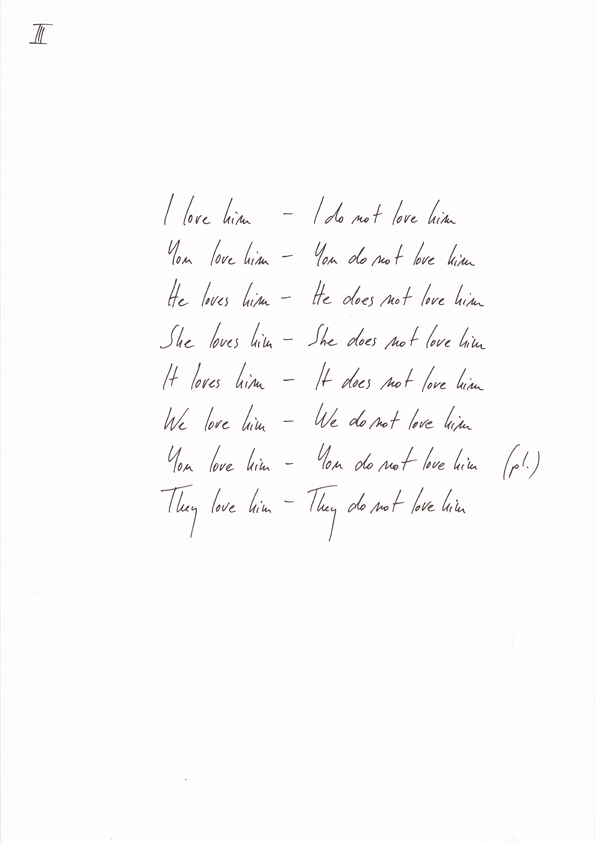 III
I love him - I do not love him
You love him - You do not love him
He loves him - He does not love him
She loves him - She does not love him
It loves him - It does not love him
We love him - We do not love him
You love him - You do not love him (pl.)
They love him - They do not love him